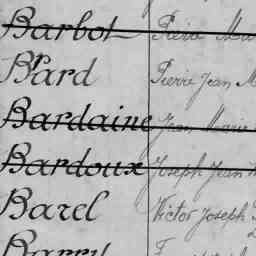 Barbot Pierre Ma
Bard Pierre Jean M
Bardaine Jean Marie
Bardoux Joseph Jean M
Barel Victor Joseph
Barry